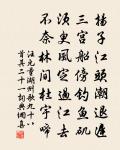 揚子江頭潮退遲
三宮船傍釣魚磯
須臾風定過江去
不奈林間杜宇啼
汪元量湖州歌九十八
首其二十一詞典網書